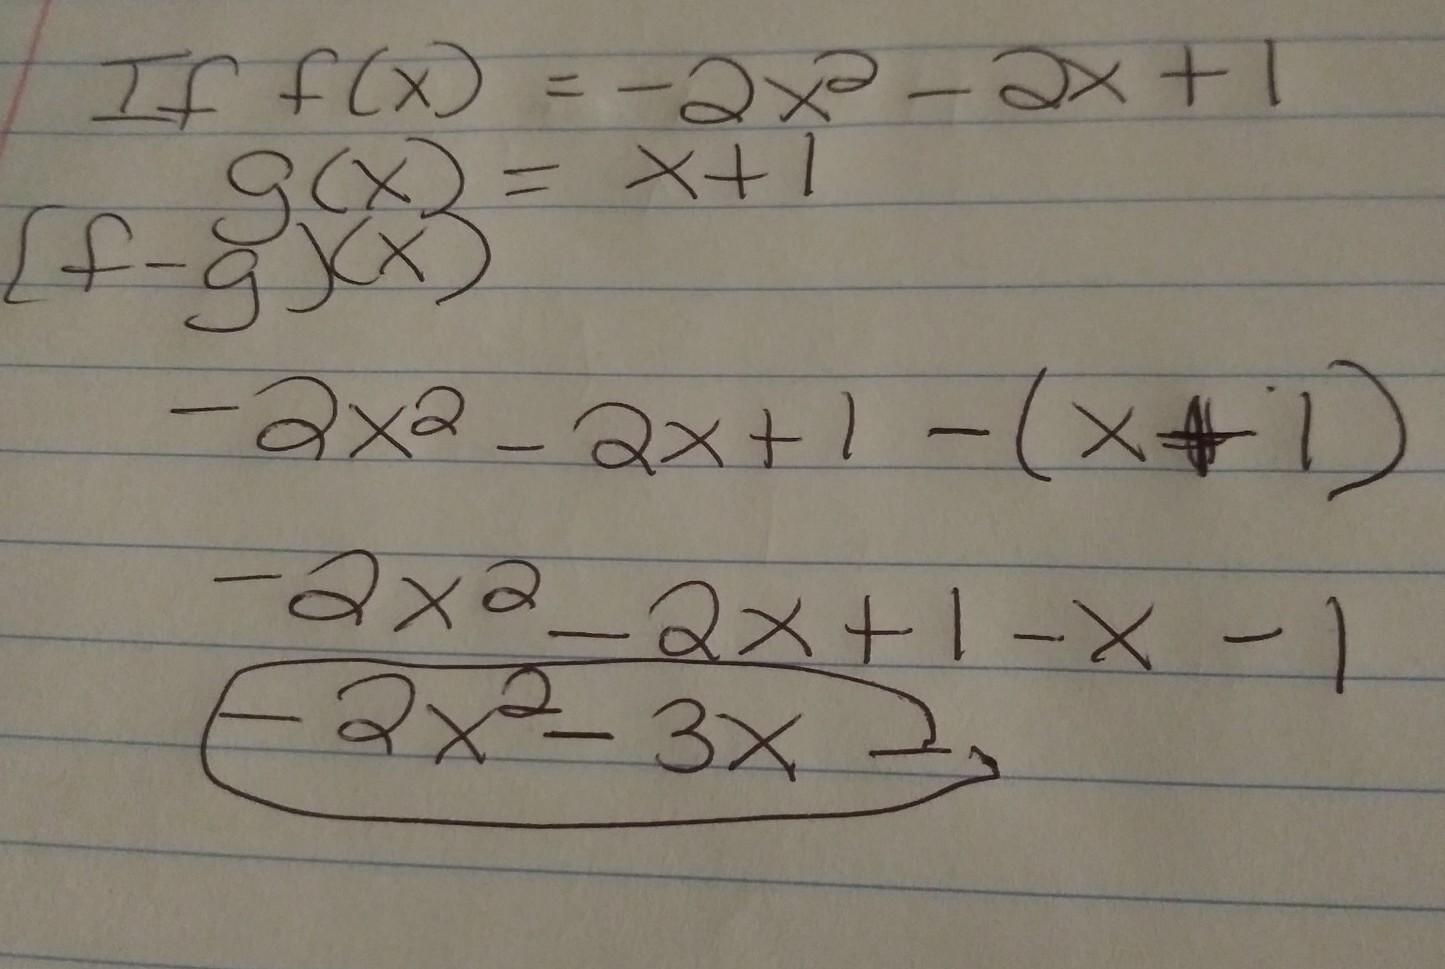 If f(x) = -2x² - 2x + 1
g(x) = x+1
[f-g)(x)
-2x² - 2x + 1 - (x + 1)
-2x² - 2x + 1 - x - 1
-2x² - 3x